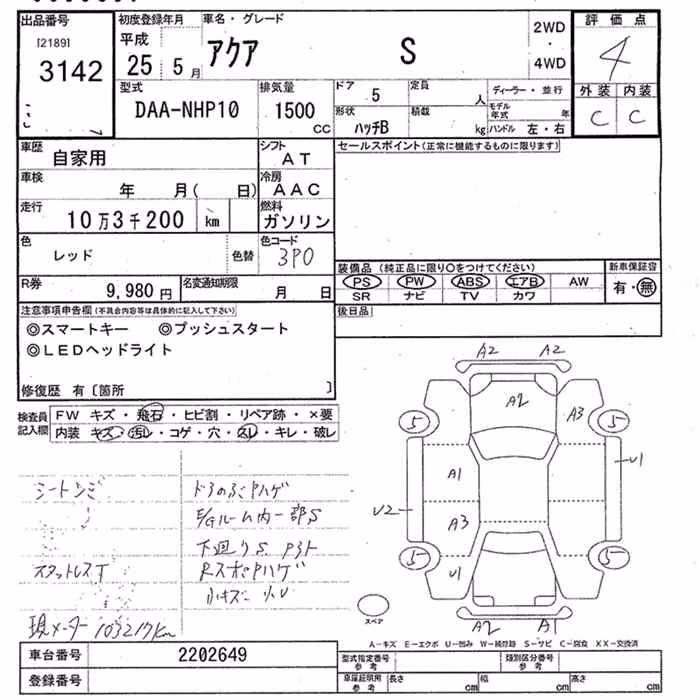 出品番号 初度登録年月 車名・グレード 2WD 評価点
[2189] 平成 アクア S ・ 4
3142 25 5月 4WD
型式 排気量 ドア 5 定員 人 ディーラー・並行 外装 内装
DAA-NHP10 1500 CC 形状 ハッチB 積載 kg モデル年式 年 ハンドル 左・右 C C
車歴 自家用 シフト AT セールスポイント(正常に機能するものに限ります)
車検 年 月( 日) 冷房 AAC
走行 10万3千200 km 燃料 ガソリン
色 レッド 色替 色コード 3P0
装備品 (純正品に限り○をつけてください) 新車保証書
R券 9,980円 名変通知期限 月 日 PS PW ABS エアB AW 有・無
SR ナビ TV カワ
注意事項申告欄(不具合内容等は具体的に記入して下さい) 後日品
◎スマートキー ◎プッシュスタート
◎LEDヘッドライト
修復歴 有〔箇所 〕
検査員記入欄 FW キズ・飛石・ヒビ割・リペア跡・×要
内装 キズ・汚レ・コゲ・穴・スレ・キレ・破レ
A2 A2
A2 A3
5 5
A1 U1
U2 A3
5 5
U1
A2 A1
スペア
シートシミ
E/Gルーム内一部S
下廻りS
現メーター 103217km
A-キズ E-エクボ U-凹み W-補修跡 S-サビ C-腐食 XX-交換済
車台番号 2202649 型式指定番号 参考 類別区分番号 参考
登録番号 車庫証明用 参考 長さ cm 幅 cm 高さ cm